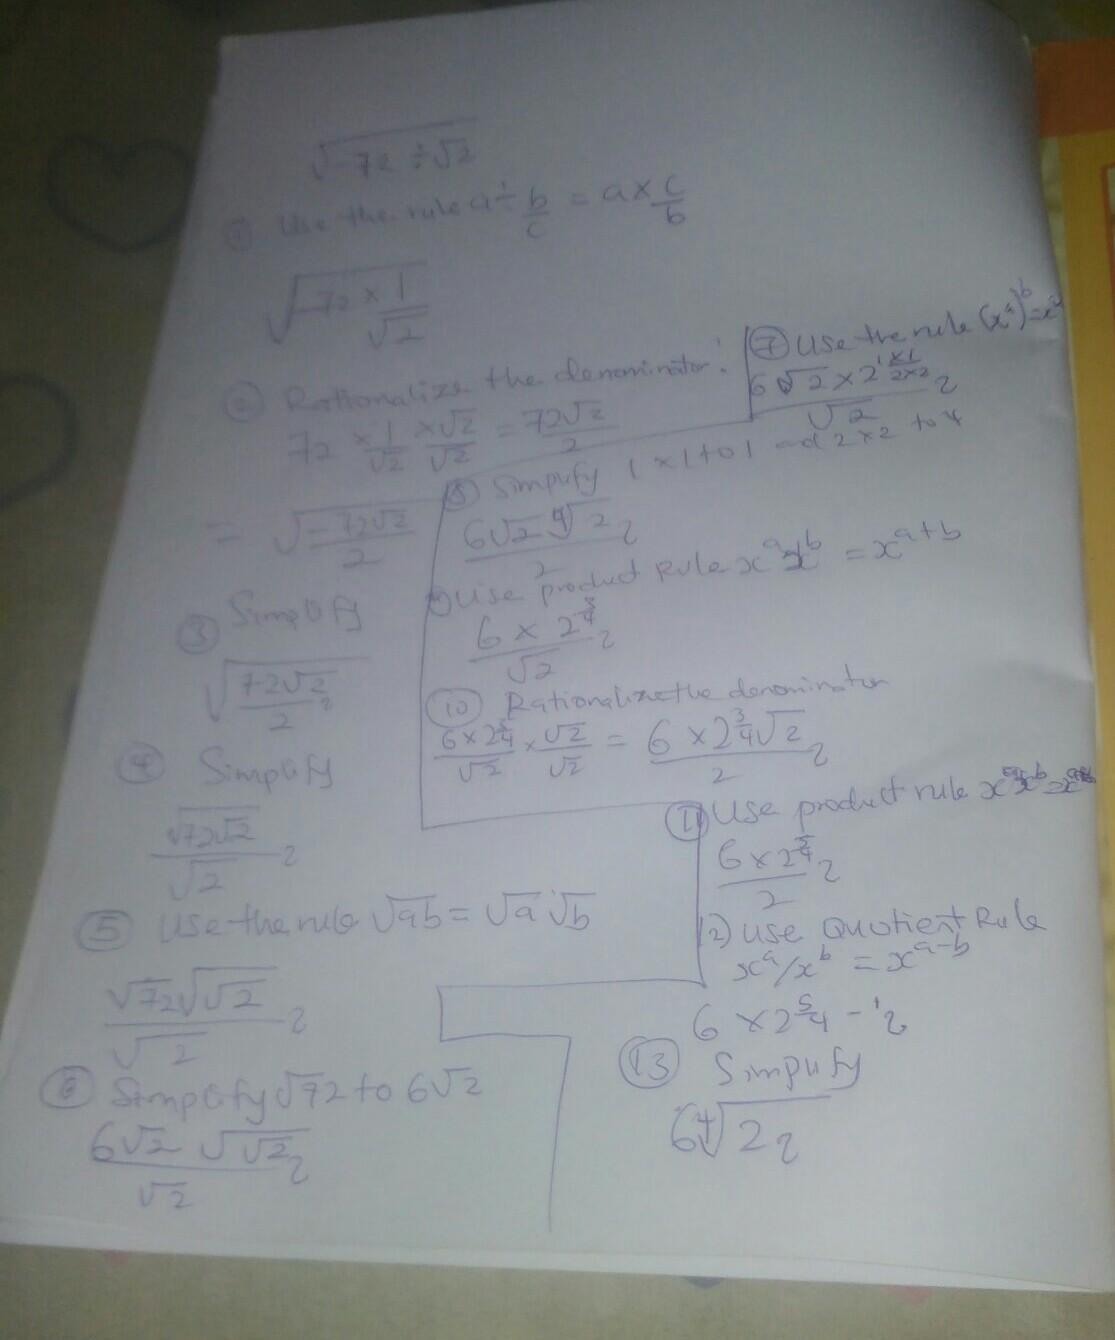 √72 ÷ √2
① Use the rule a ÷ b/c = a × c/b
√-72 × 1/√2
② Rationalize the denominator:
72 × 1/√2 × √2/√2 = 72√2/2
= √-72√2/2
③ Simplify
√72√2/2 ?
④ Simplify
√72√2/√2 ?
⑤ Use the rule √ab = √a √b
√72√√2/√2 ?
⑥ Simplify √72 to 6√2
6√2 √√2/√2 ?
⑦ Use the rule (xᵃ)ᵇ = x
6√2 × 2^(1×1/2×2)/√2 ?
⑧ Simplify 1 × 1 to 1 and 2 × 2 to 4
6√2 ∜2/2 ?
⑨ Use product Rule xᵃxᵇ = xᵃ⁺ᵇ
6 × 2^(3/4)/√2 ?
⑩ Rationalize the denominator
6 × 2^(3/4)/√2 × √2/√2 = 6 × 2^(3/4)√2/2 ?
⑪ Use product rule
6 × 2^(5/4)/2 ?
12) Use Quotient Rule
xᵃ/xᵇ = xᵃ⁻ᵇ
6 × 2^(5/4) - 1 ?
⑬ Simplify
6∜2 ?